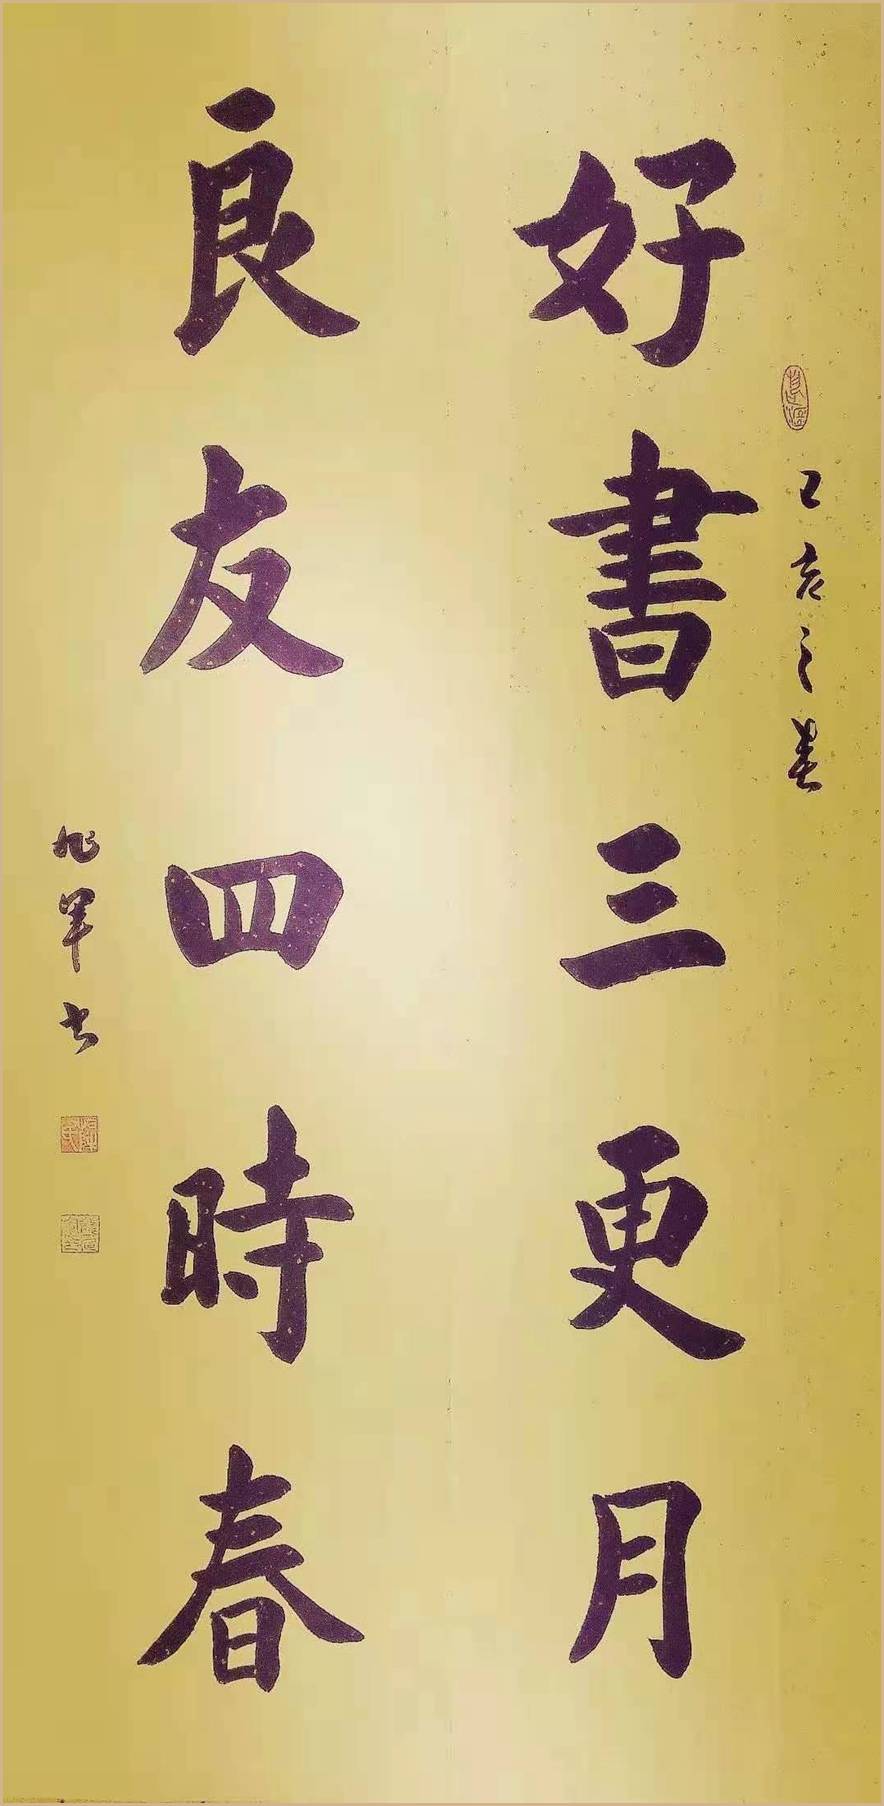 己亥之春
好書三更月
良友四時春
旭军书